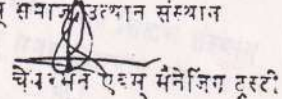 समाज उत्थान संस्थान
चेयरमैन एवम् मैनेजिंग ट्रस्टी